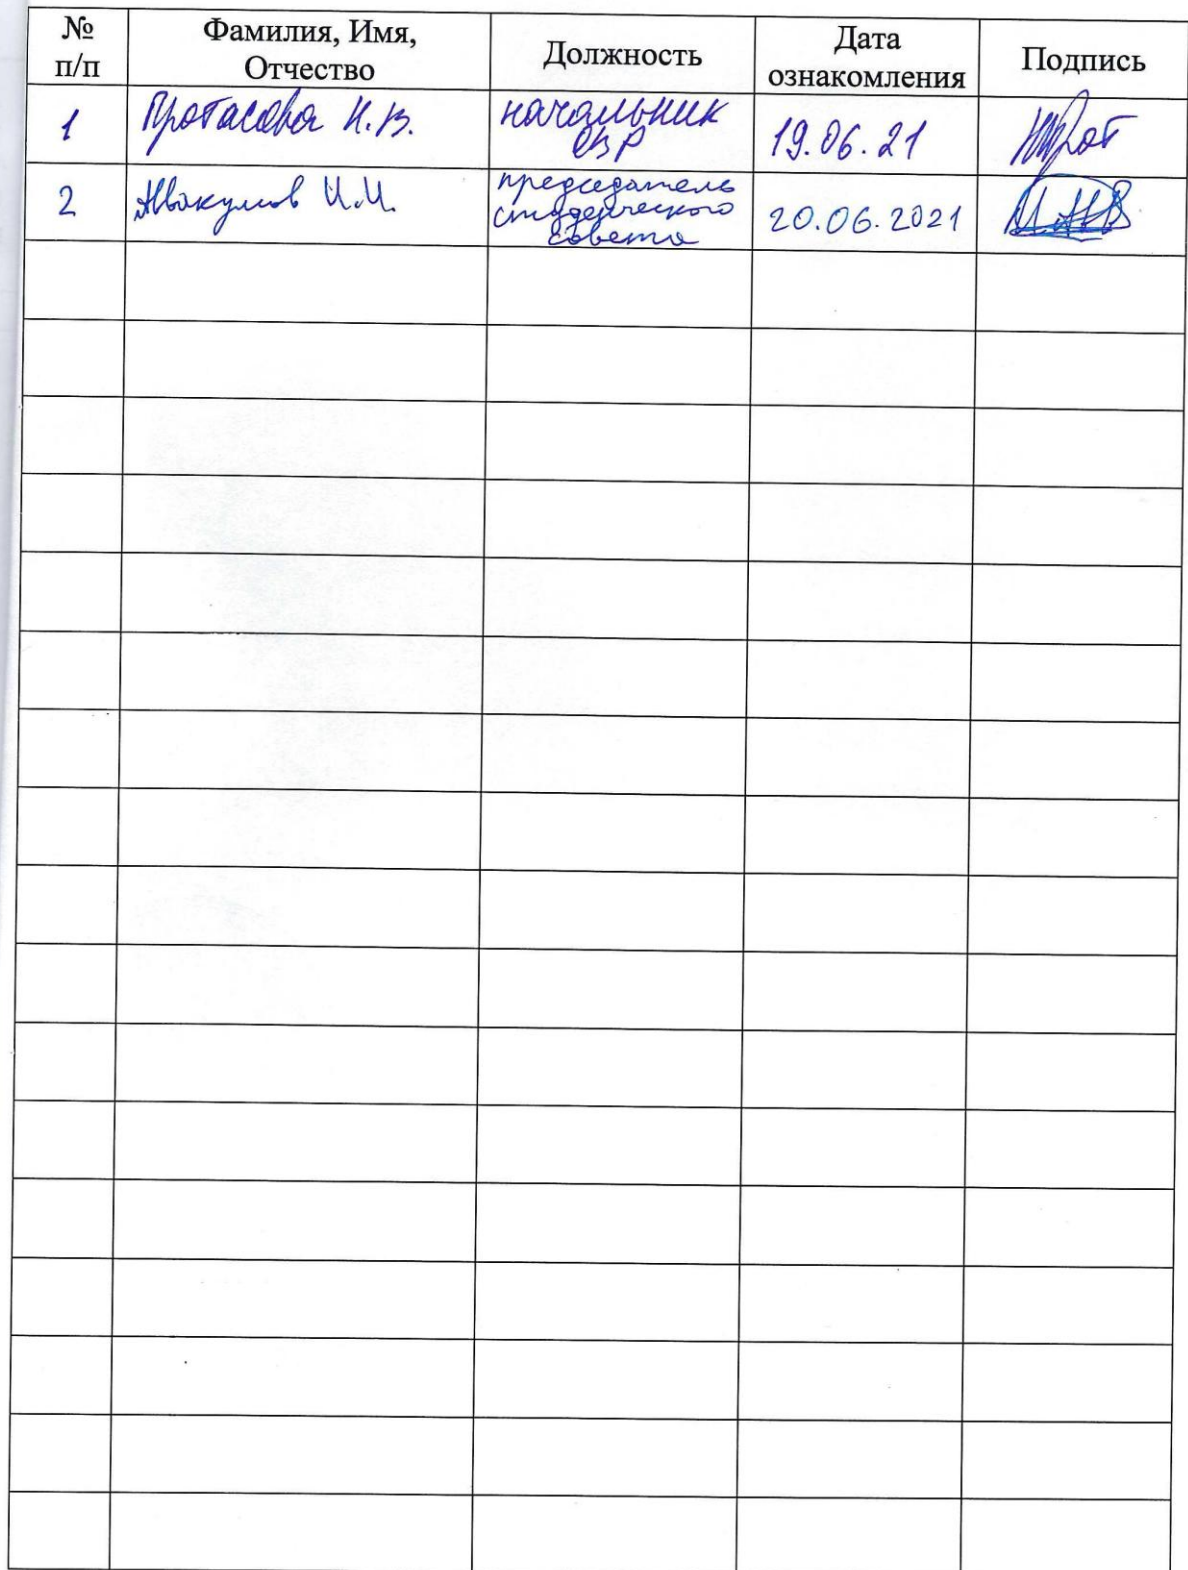 № п/п Фамилия, Имя, Отчество Должность Дата ознакомления Подпись
1 Протасова Н.В. начальник ОВР 19.06.21
2 Аввакумов И.И. председатель студенческого совета 20.06.2021